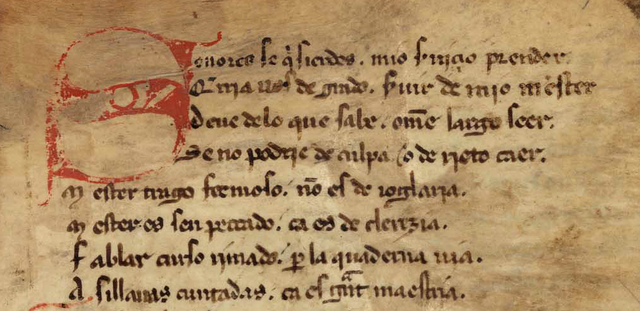 Senores se q̇sieredes. mio ẛuiçio prender.
Q̇rria uos de grado. ẛuir de mjo mẽster
Deue delo que sabe. om̃e largo seer.
Se no podrie de culpa / o de rieto caer.
M ester trago fermoso. nõ es de ioglaria.
M ester es sen peccado. ca es de clerezia.
F ablar curso rimado. ꝑ la quaderna uia.
A sillauas cuntadas. ca es gᵃ̃t maestria.